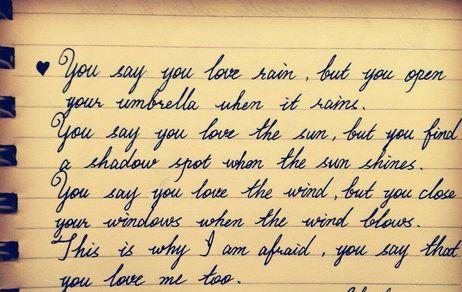 ♥ You say you love rain, but you open
your umbrella when it rains.
You say you love the sun, but you find
a shadow spot when the sun shines.
You say you love the wind, but you close
your windows when the wind blows.
This is why I am afraid, you say that
you love me too.